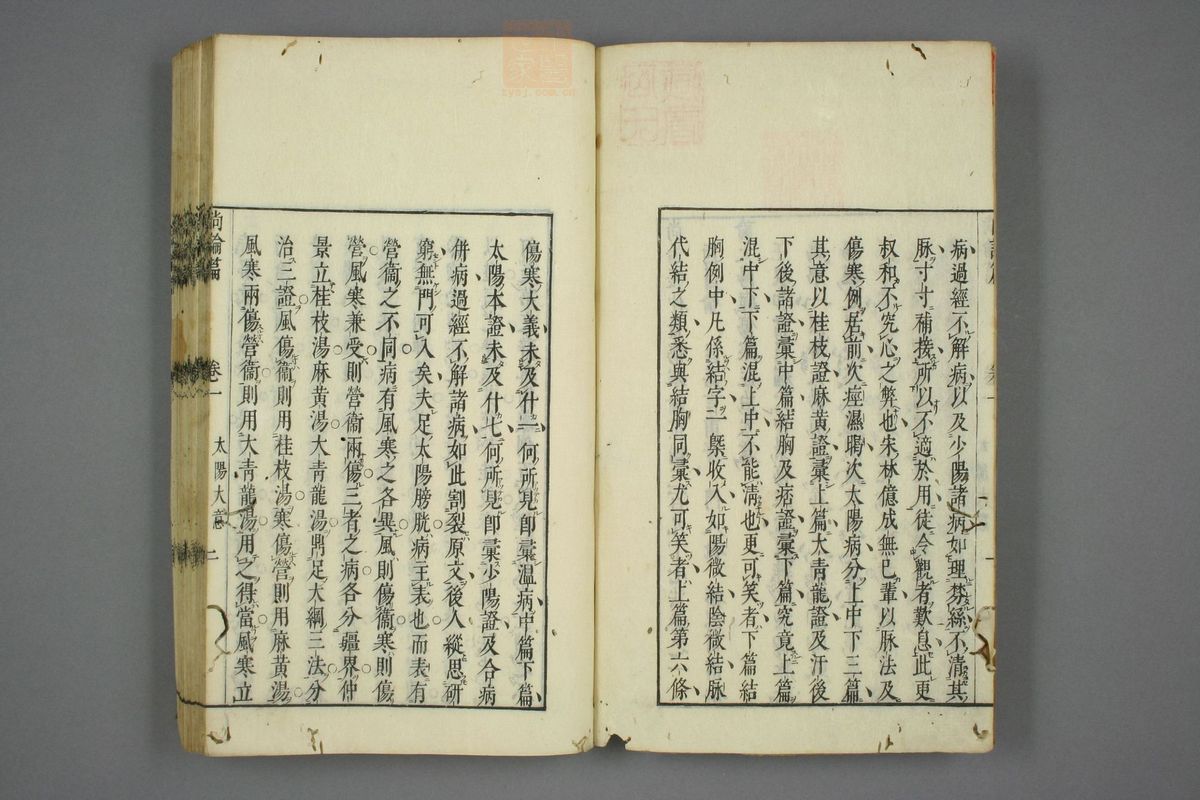 病過經不解病以及少陽諸病如理棼絲不清其
脉寸寸補接所以不適於用徒令觀者歎息此更
叔和不究心之弊也朱林億成無巳輩以脉法及
傷寒例居前次痙濕暍次太陽病分上中下三篇
其意以桂枝證麻黃證彙上篇大青龍證及汗後
下後諸證彙中篇結胸及痞證彙下篇究竟上篇
混中下下篇混上中不能淸也更可笑者下篇結
胸例中凡係結字一槩收入如陽微結陰微結脉
代結之類悉與結胸同彙尤可笑者上篇第六條
傷寒大義未及什一何所見即彙温病中篇下篇
太陽本證未及什七何所見即彙少陽證及合病
併病過經不解諸病如此割裂原文後人縱思研
窮無門可入矣夫足太陽膀胱病主表也而表有
營衞之不同病有風寒之各異風則傷衞寒則傷
營風寒兼受則營衞兩傷三者之病各分疆界仲
景立桂枝湯麻黃湯大青龍湯鼎足大綱三法分
治三證風傷衞則用桂枝湯寒傷營則用麻黃湯
風寒兩傷營衞則用大青龍湯用之得當風寒立
尚論篇 卷一 太陽大意 二
zysj.com.cn